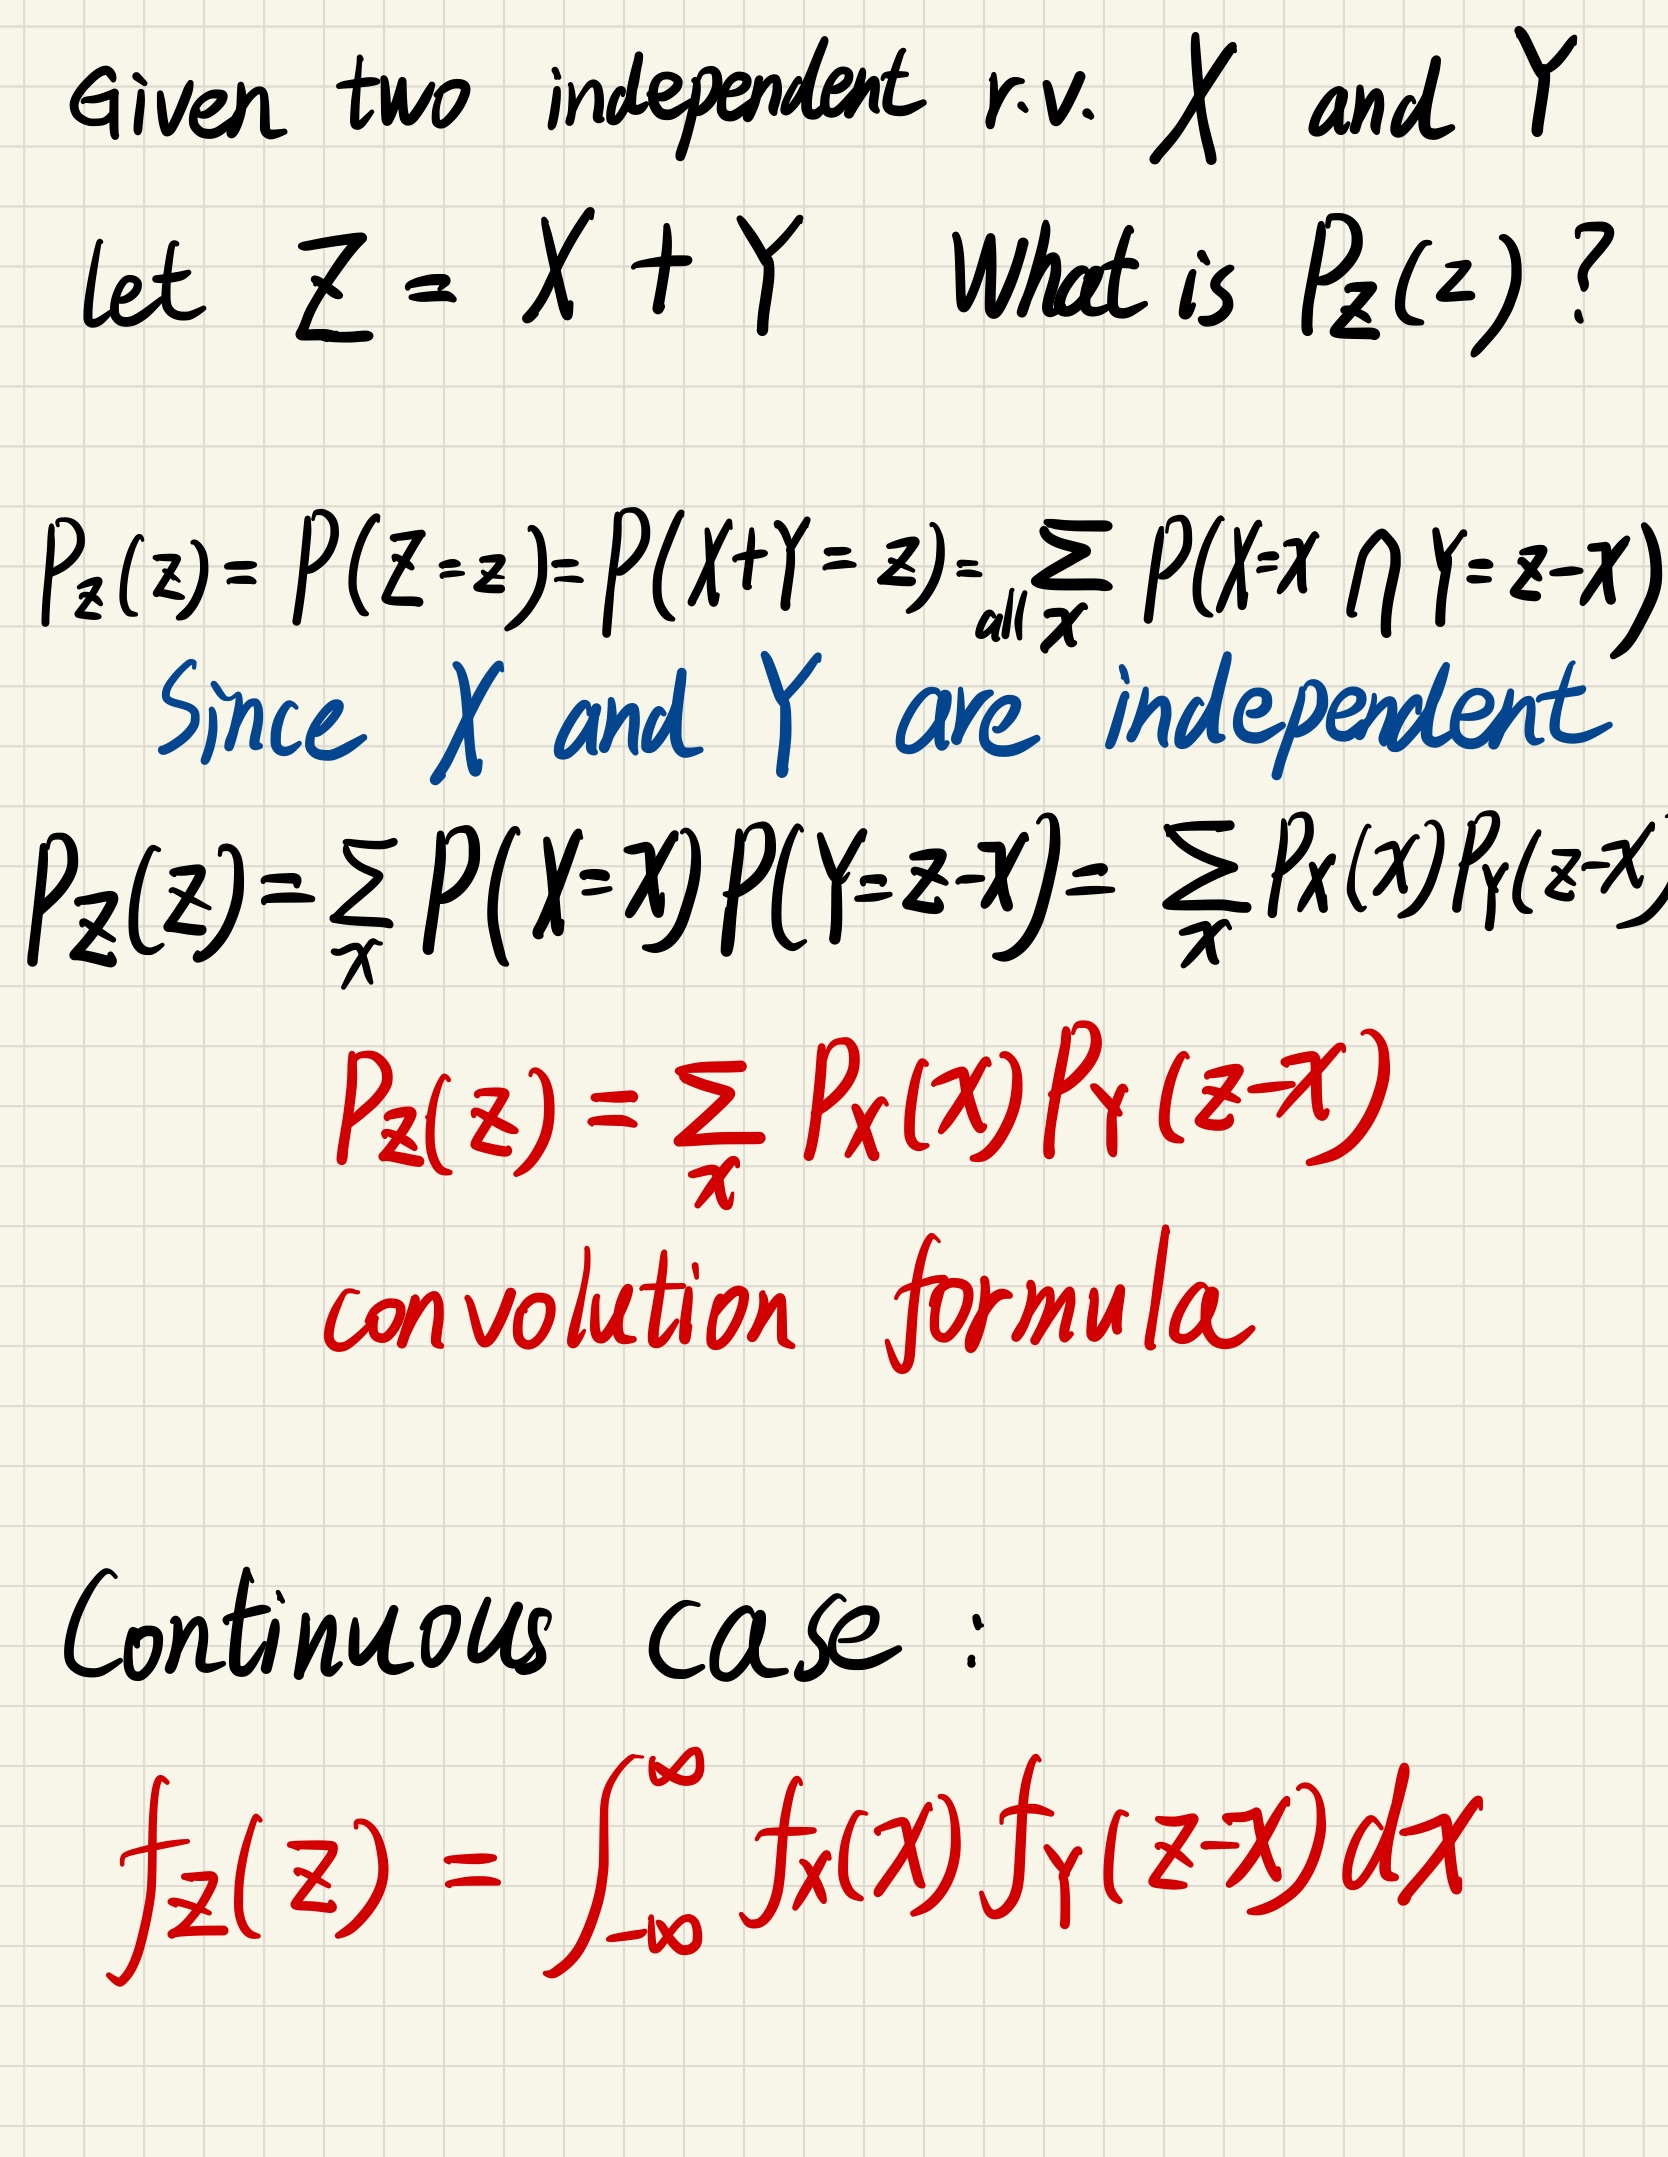 Given two independent r.v. X and Y
let Z = X + Y What is P_Z(z)?
P_Z(z) = P(Z=z) = P(X+Y=z) = Σ_{all x} P(X=x ∩ Y=z-x)
Since X and Y are independent
P_Z(z) = Σ_x P(X=x)P(Y=z-x) = Σ_x P_X(x)P_Y(z-x)
P_Z(z) = Σ_x P_X(x)P_Y(z-x)
convolution formula
Continuous case :
f_Z(z) = ∫_{-∞}^{∞} f_X(x) f_Y(z-x) dx